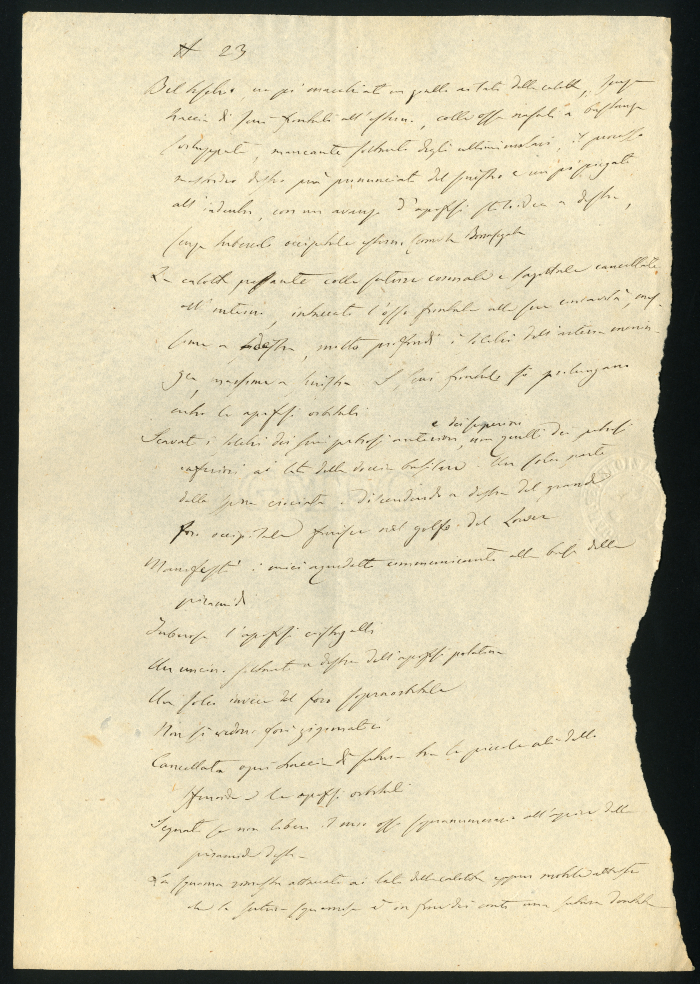 N 23
Bel teschio, un po' macchiato in quella ai lati della calotta, senza
traccia di seni frontali all'esterno, colle ossa nasali a bastanza
sviluppate, mancante soltanto degli ultimi molari, il processo
mastoideo destro più pronunciato del sinistro e un po' piegato
all'indentro, con un avanzo d'apofisi stiloidea a destra,
senza tubercolo occipitale esterno
La calotta pesante colle suture coronale e sagittale cancellate
all'interno, intaccato l'osso frontale alla sua concavità, mas-
sime a destra, molto profondi i solchi dell'arteria menin-
gea, massime a sinistra. I seni frontali si prolungano
entro le apofisi orbitali
Scavati i solchi dei seni petrosi anteriori, e dei superiori non quelli dei petrosi
inferiori ai lati della doccia basilare. Un solco parte
della spina crociata e discendendo a destra del grande
foro occipitale finisce nel golfo del Lower
Manifesti i aquedotti comunicanti alla base della
piramide
Tuberosa l'apofisi cristagalli
Un uncino soltanto a destra dell'apofisi palatina
Un solco invece del foro sopraorbitale
Non si vedono fori zigomatici
Cancellata ogni traccia di sutura tra le piccole ali dello
sfenoide e le apofisi orbitali
Segnato se non libero il osso soprannumerario all'apice della
piramide destra
La squama attaccata ai lati della calotta eppure mobile attesta
che la sutura squamosa è in fin dei conti una sutura dentata